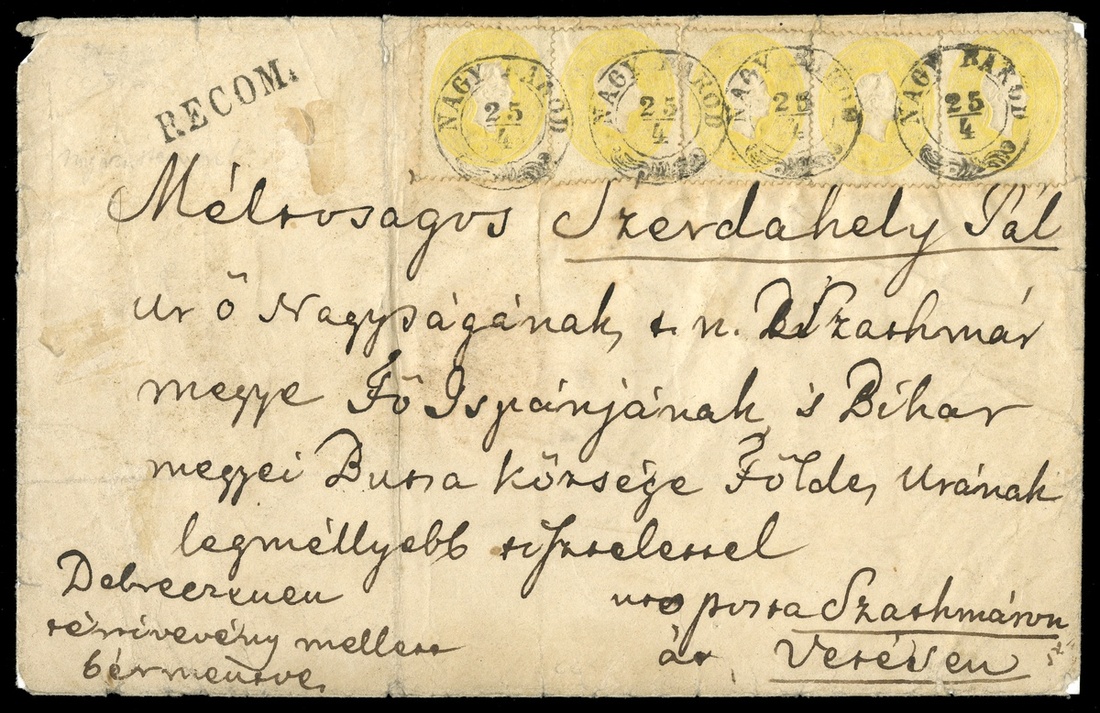 RECOM.
NAGY BAROD 25/4 NAGY BAROD 25/4 NAGY BAROD 25/4 NAGY BAROD 25/4
Méltoságos Szerdahely Pál
ur ő Nagyságának, t. n. Szathmár
megye Fő Ispánjának, 's Bihar
megyei Butsa községe Földes Urának
legméllyebb tisztelettel
Debreczenen
tértivevény mellett
bérmentve,
utó posta Szathmáron
át, Vetésen